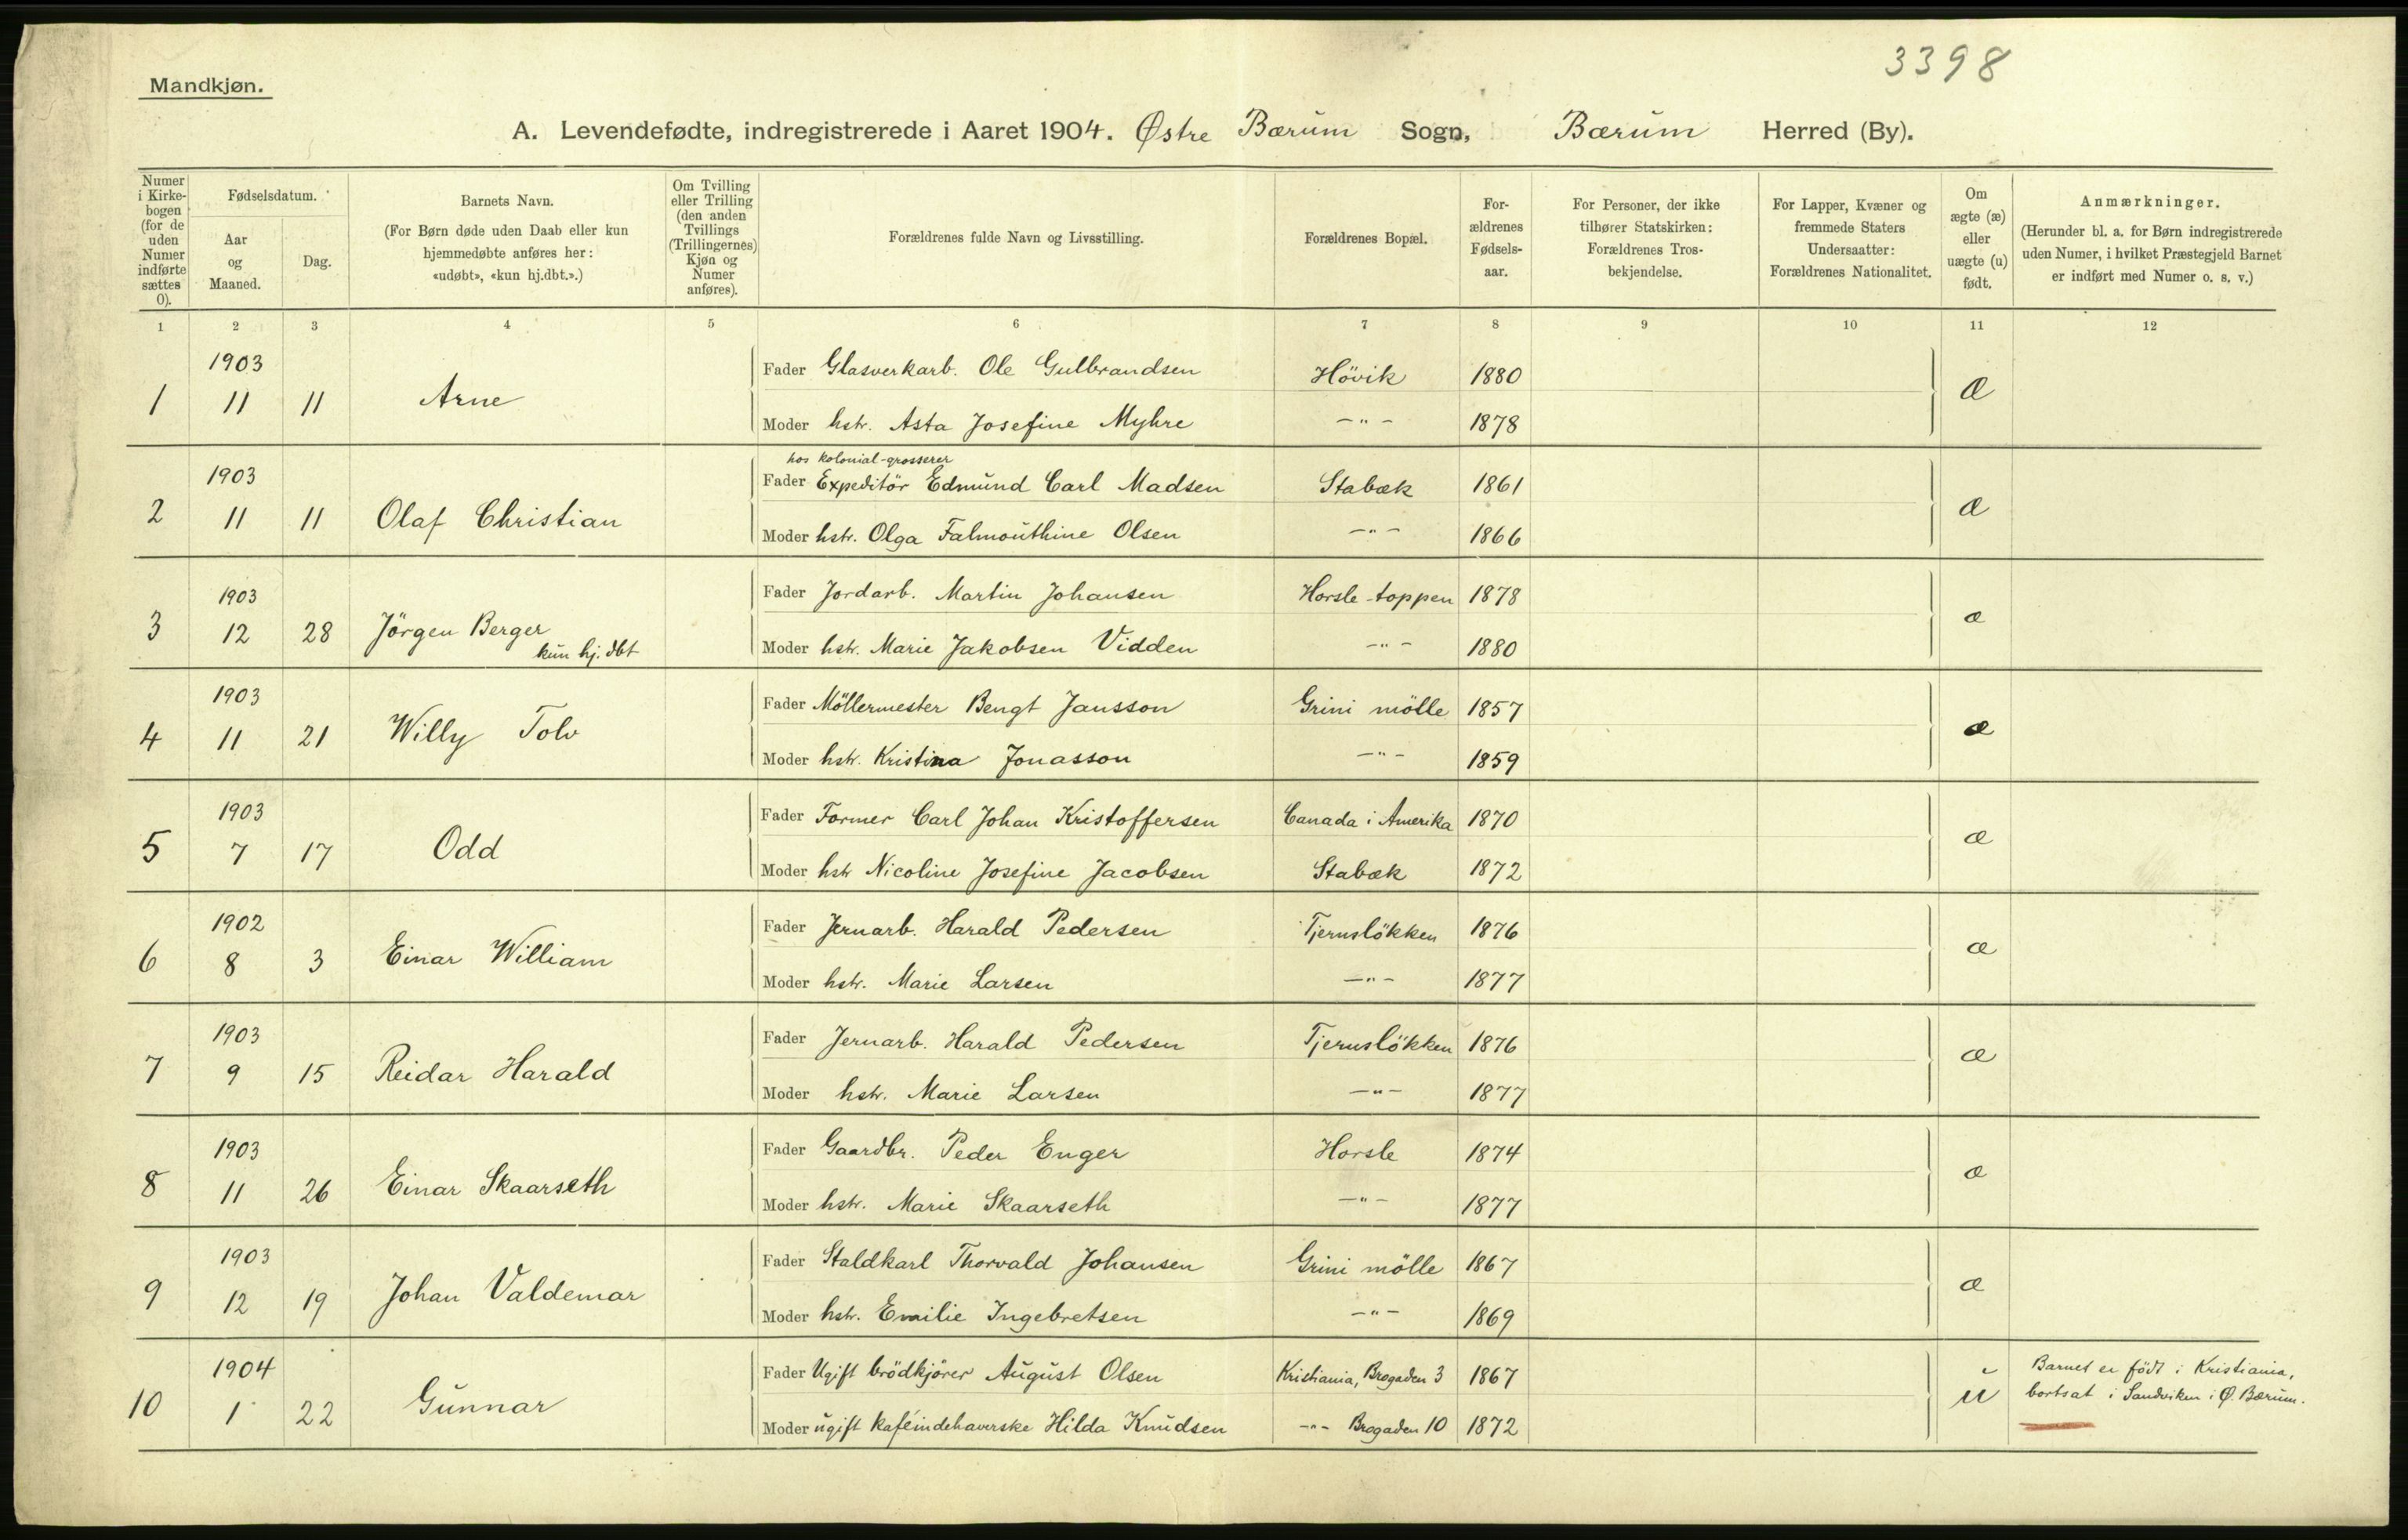 3398
Mandkjøn.
A. Levendefødte, indregistrerede i Aaret 1904. Østre Bærum Sogn, Bærum Herred (By).
Numer i Kirkebogen (for de uden Numer indførte sættes 0).
Fødselsdatum.
Aar og Maaned.
Dag.
Barnets Navn.
(For Børn døde uden Daab eller kun hjemmedøbte anføres her: «udøbt», «kun hj.dbt.».)
Om Tvilling eller Trilling (den anden Tvillings (Trillingernes) Kjøn og Numer anføres).
Forældrenes fulde Navn og Livsstilling.
Forældrenes Bopæl.
Forældrenes Fødselsaar.
For Personer, der ikke tilhører Statskirken: Forældrenes Trosbekjendelse.
For Lapper, Kvæner og fremmede Staters Undersaatter: Forældrenes Nationalitet.
Om ægte (æ) eller uægte (u) født.
Anmærkninger.
(Herunder bl. a. for Børn indregistrerede uden Numer, i hvilket Præstegjeld Barnet er indført med Numer o. s. v.)
1 2 3 4 5 6 7 8 9 10 11 12
1903
Fader Glasverkarb. Ole Gulbrandsen Hövik 1880
1 11 11 Arne æ
Moder hstr. Asta Josefine Myhre -"- 1878
hos kolonial-grosserer
1903 Fader Expeditör Edmund Carl Madsen Stabæk 1861
2 11 11 Olaf Christian æ
Moder hstr. Olga Falmouthine Olsen -"- 1866
1903 Fader Jordarb. Martin Johansen Horsle-toppen 1878
3 12 28 Jörgen Berger æ
kun hj. dbt Moder hstr. Marie Jakobsen Vidden -"- 1880
1903 Fader Möllermester Bengt Jansson Grini mölle 1857
4 11 21 Willy Tolv æ
Moder hstr. Kristina Jonasson -"- 1859
1903 Fader Former Carl Johan Kristoffersen Canada i Amerika 1870
5 7 17 Odd æ
Moder hstr Nicoline Josefine Jacobsen Stabæk 1872
1902 Fader Jernarb. Harald Pedersen Tjernslökken 1876
6 8 3 Einar William æ
Moder hstr. Marie Larsen -"- 1877
1903 Fader Jernarb. Harald Pedersen Tjernslökken 1876
7 9 15 Reidar Harald æ
Moder hstr. Marie Larsen -"- 1877
1903 Fader Gaardbr. Peder Enger Horsle 1874
8 11 26 Einar Skaarseth æ
Moder hstr. Marie Skaarseth -"- 1877
1903 Fader Staldkarl Thorvald Johansen Grini mölle 1867
9 12 19 Johan Valdemar æ
Moder hstr. Emilie Ingebretsen -"- 1869
1904 Fader Ugift brödkjörer August Olsen Kristiania, Brogaden 3 1867 Barnet er födt i Kristiania,
10 1 22 Gunnar u bortsat i Sandviken i Ø. Bærum.
Moder ugift kaféindehaverske Hilda Knudsen -"- Brogaden 10 1872